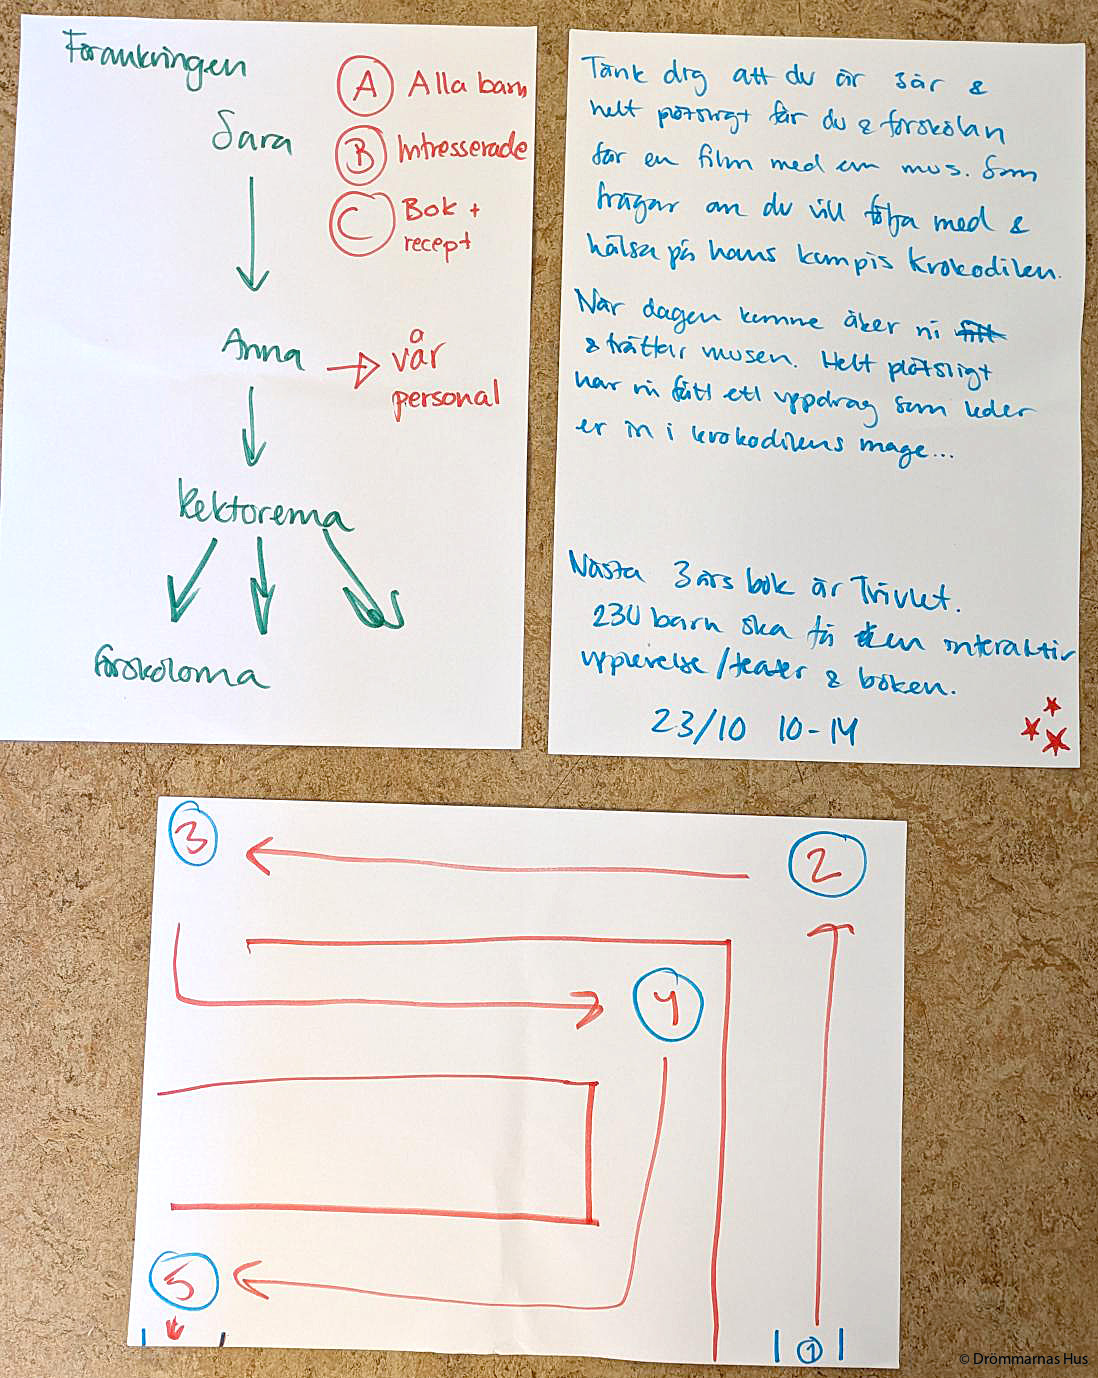 Förankringen
Sara
Anna
Rektorerna
förskolorna
A Alla barn
B Intresserade
C Bok +
recept
vår
personal
Tänk dig att du är 3 år &
helt plötsligt får du & förskolan
för en film med en mus. Som
frågar om du vill följa med &
hälsa på hans kompis krokodilen.
När dagen komme åker ni
& träffar musen. Helt plötsligt
har ni fått ett uppdrag som leder
er in i krokodilens mage...
Nästa 3 års bok är Trivlet.
230 barn ska få den interaktiv
upplevelse/teater & boken.
23/10 10-14
3
2
4
5
1
© Drömmarnas Hus